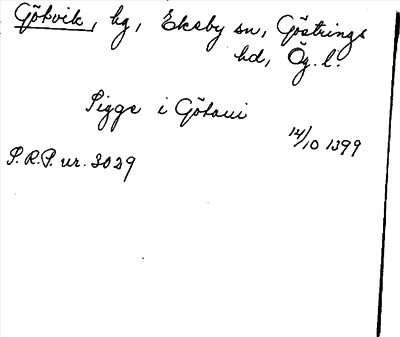 Götvik, hg, Ekeby sn, Göstrings
hd, Ög. l.
Sigge i Götaui
14/10 1399
S.R.P. nr. 3029